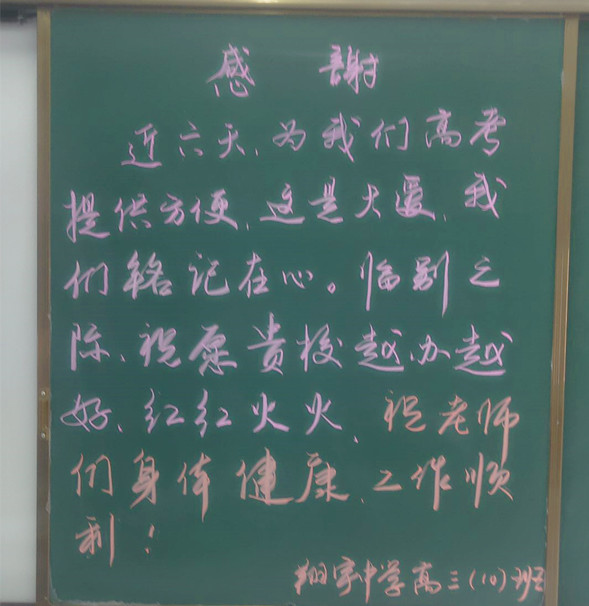 感謝
近六天,为我们高考
提供方便,这是大爱,我
们铭记在心。临别之
际,祝愿贵校越办越
好,红红火火,祝老师
们身体健康,工作顺
利!
翔宇中学高三(10)班